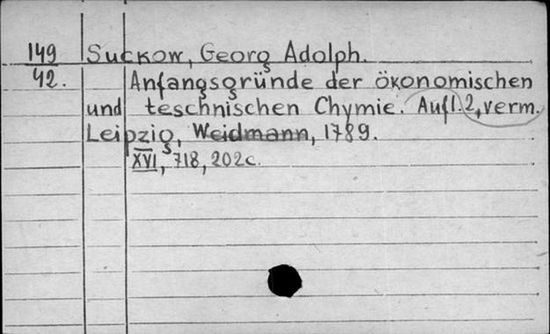 149 Suckow, Georg Adolph.
42. Anfangsgründe der ökonomischen
und teschnischen Chymie. Aufl. 2, verm.
Leipzig, Weidmann, 1789.
XVI, 718, 202c.